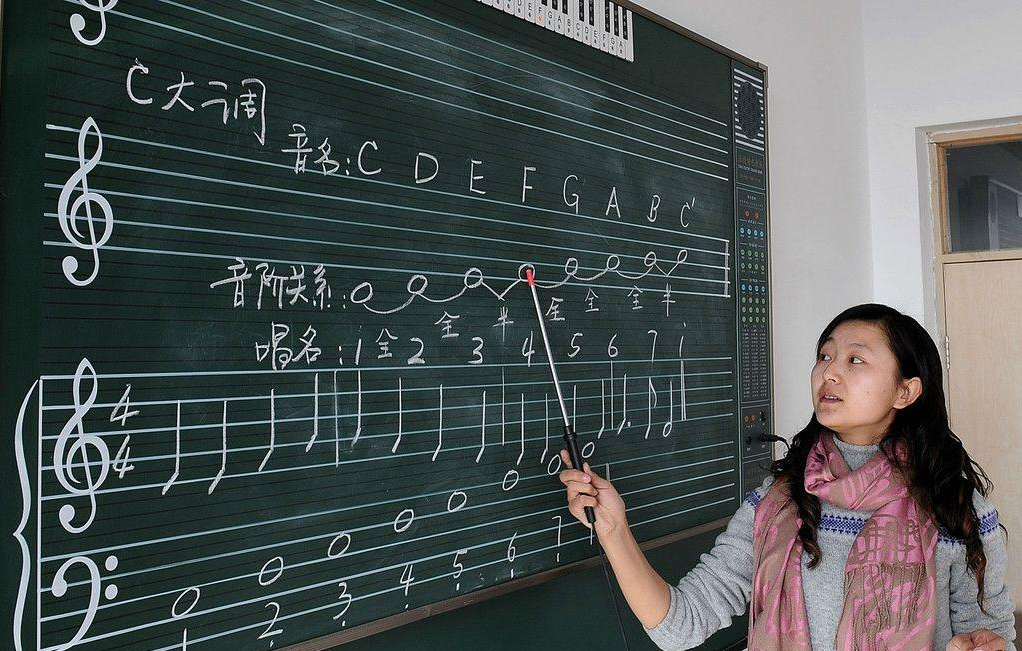 C大调
音名:C D E F G A B C'
音阶关系:
全 半 全 全 全 半
唱名:1 全 2 3 4 5 6 7 i
4
4
2 3 4 5 6 7